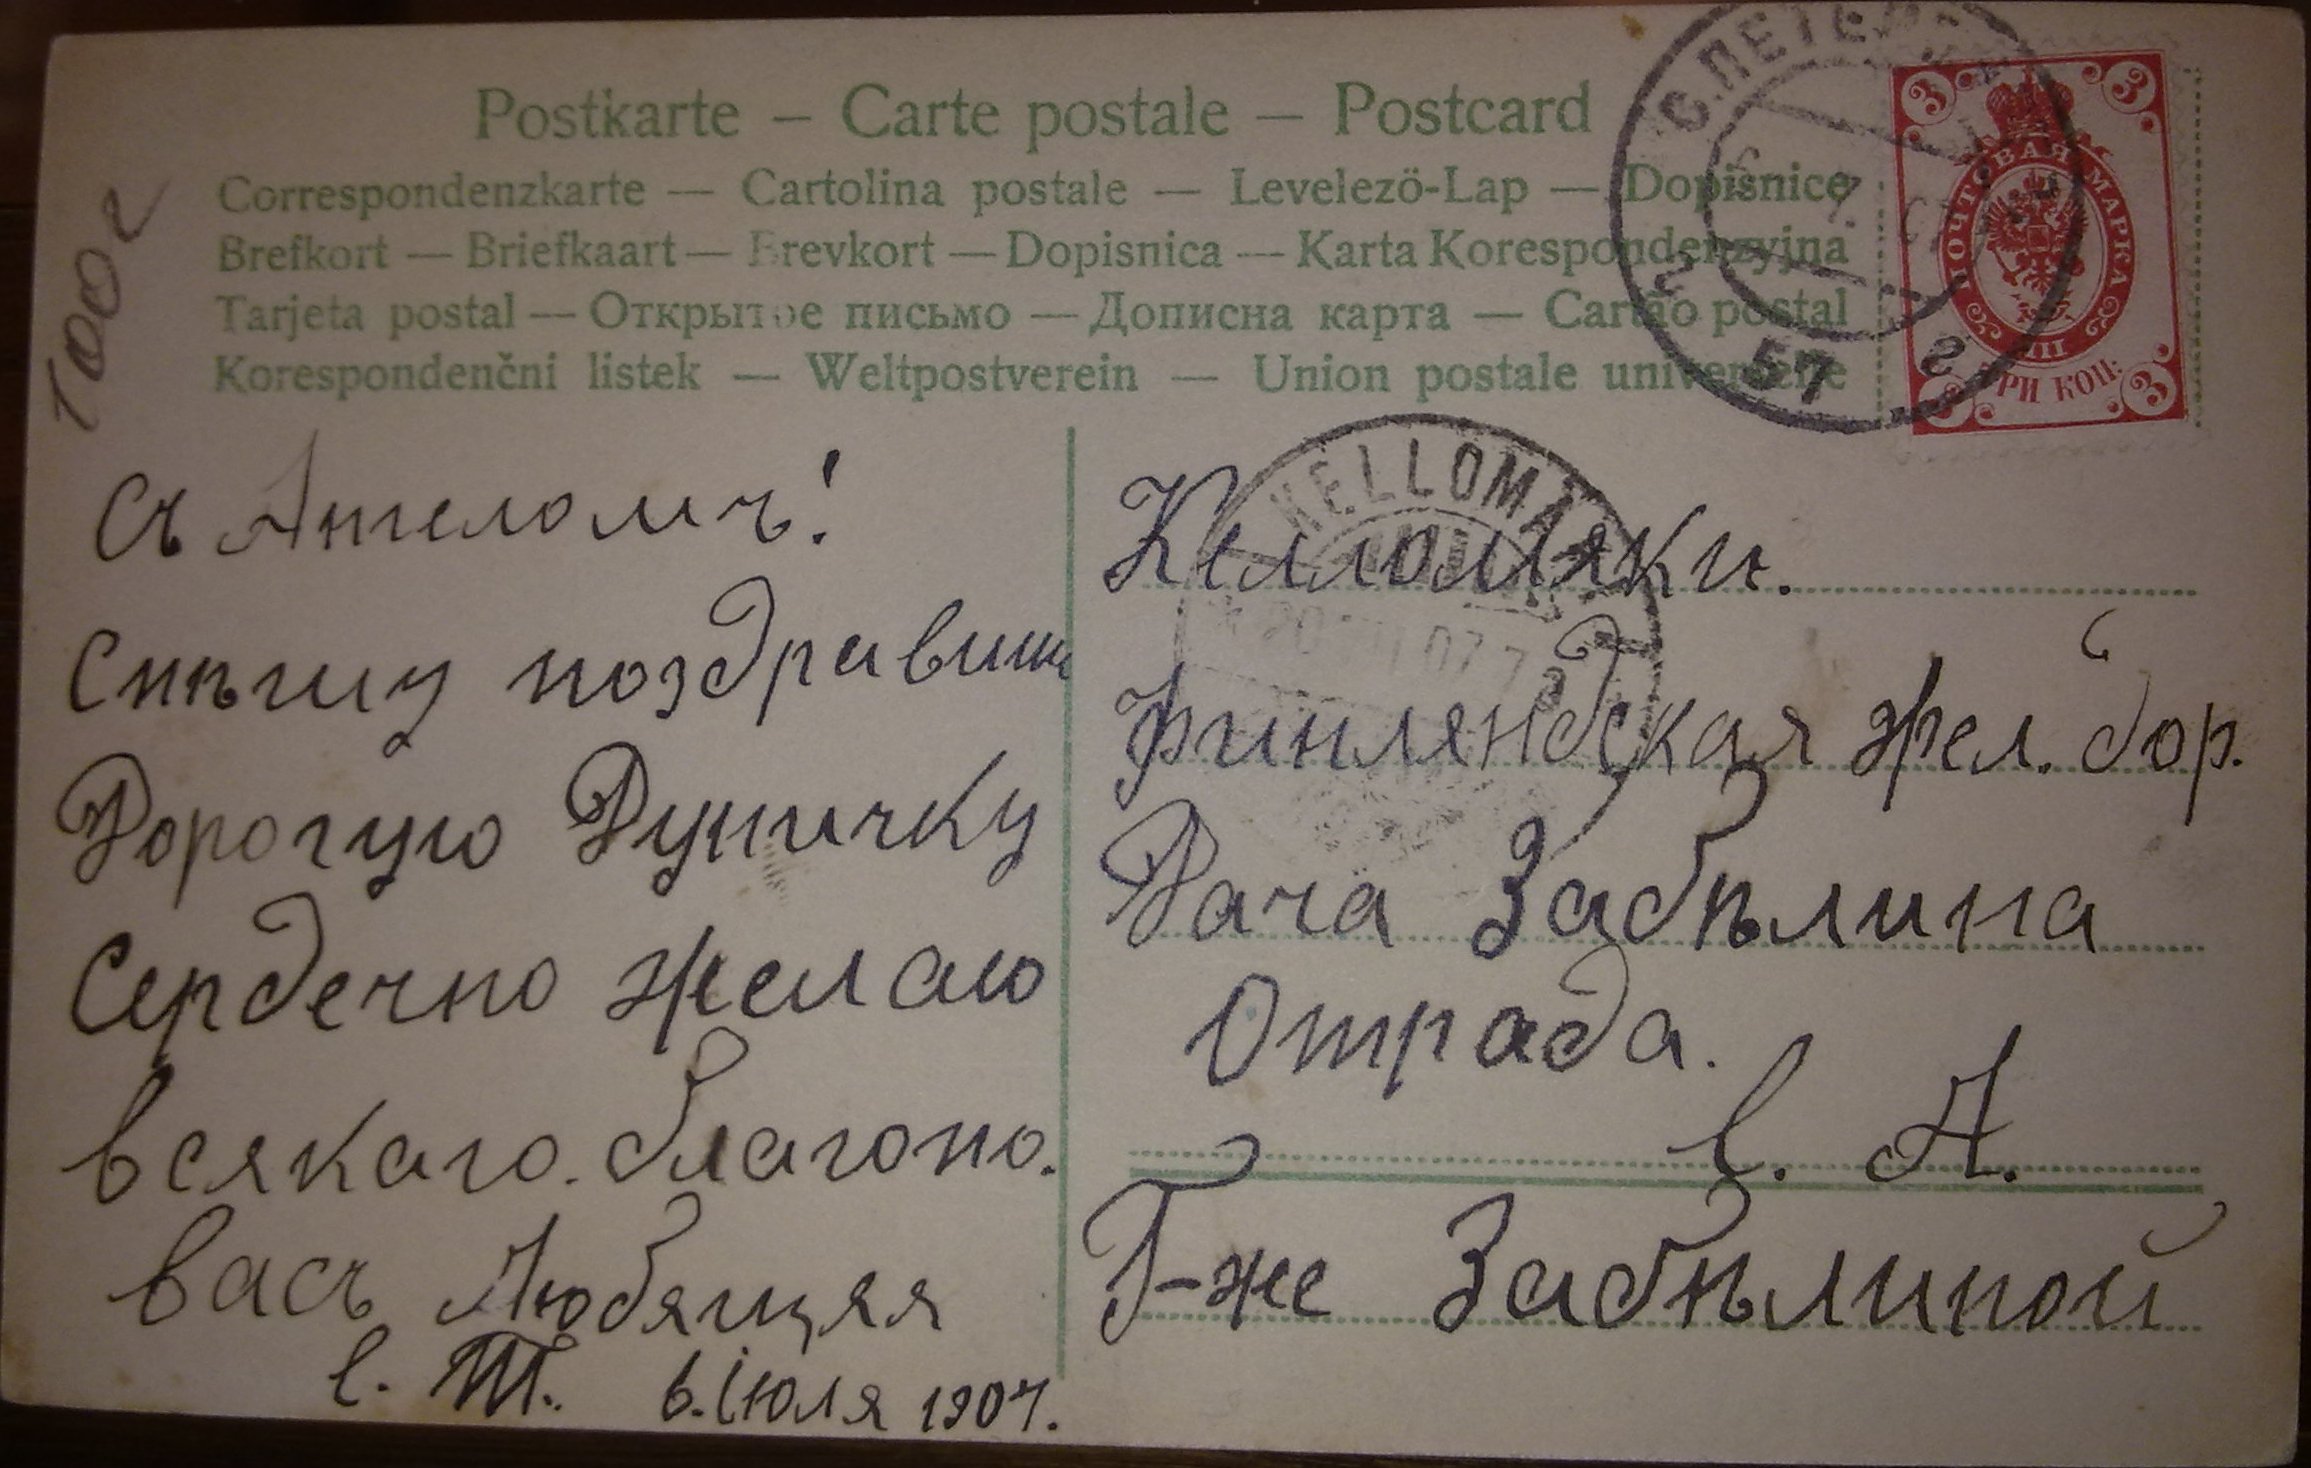 Postkarte – Carte postale – Postcard
Correspondenzkarte — Cartolina postale — Levelezö-Lap — Dopisnice
Brefkort — Briefkaart — Brevkort — Dopisnica — Karta Korespondenzyjna
Tarjeta postal — Открытое письмо — Дописна карта — Cartão postal
Korespondenčni listek — Weltpostverein — Union postale universelle
С.ПЕТЕР
57
2
ПОЧТОВАЯ МАРКА
ТРИ КОП.
3 3 3 3
Съ Ангеломъ!
Спѣшу поздравить
Дорогую Дуничку
Сердечно желаю
всякаго. благопо.
васъ Любящяя
Е. Т. 6. Іюля 1907.
KELLOMÄ
07
Келломяки.
Финляндская жел. дор.
Дача Забѣлина
Отрада.
Е. А.
Г-же Забѣлиной